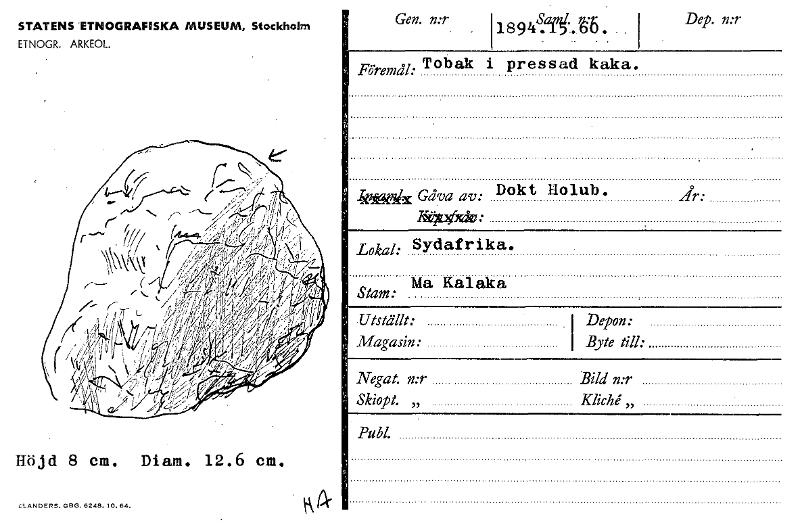 STATENS ETNOGRAFISKA MUSEUM, Stockholm
ETNOGR. ARKEOL.
Höjd 8 cm. Diam. 12.6 cm.
ELANDERS. GBG. 6248. 10. 64.
HA
Gen. n:r Saml. n:r Dep. n:r
1894.15.60.
Föremål: Tobak i pressad kaka.
Insaml. Gåva av: Dokt Holub. År:
Köp. från:
Lokal: Sydafrika.
Stam: Ma Kalaka
Utställt: Depon:
Magasin: Byte till:
Negat. n:r Bild n:r
Skiopt. „ Kliché „
Publ.